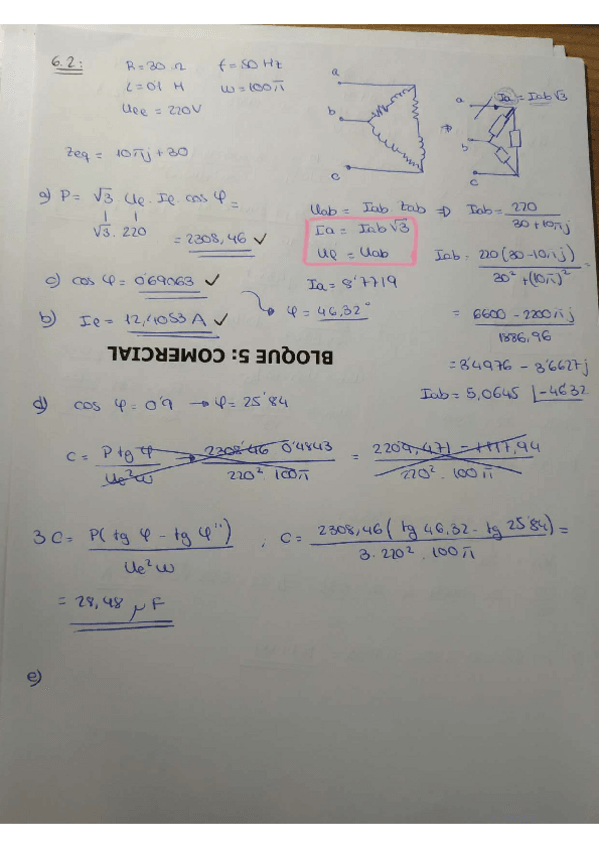 6.2:
R=30 Ω f=50 Hz
L=0'1 H ω=100π
Uee = 220V
Zeq = 10πj+30
a
b
c
⇒
a
b
c
Ia = Iab√3
a) P= √3 · Ue · Ie · cos φ =
√3 · 220
= 2308,46 ✓
Uab = Iab · Zab ⇒ Iab = 220 / 30+10πj
Ia = Iab√3
Ue = Uab
Iab = 220(30-10πj) / 30² + (10π)² =
Ia = 8'7719
c) cos φ = 0'69063 ✓
φ = 46,32°
= 6600 - 2200πj / 1886,96
b) Ie = 12,4053 A ✓
BLOQUE 5: COMERCIAL
= 3'4976 - 3'6627j
Iab = 5,0645 |-46'32
d) cos φ = 0'9 → φ = 25'84
C = P tg φ / Ue²ω = 2308'46 0'4843 / 220² 100π = 2209,471 - 1117,94 / 220² · 100π
3C = P( tg φ - tg φ'') / Ue²ω ; C = 2308,46( tg 46,32 - tg 25'84) / 3 · 220² · 100π =
= 28,48 μF
e)